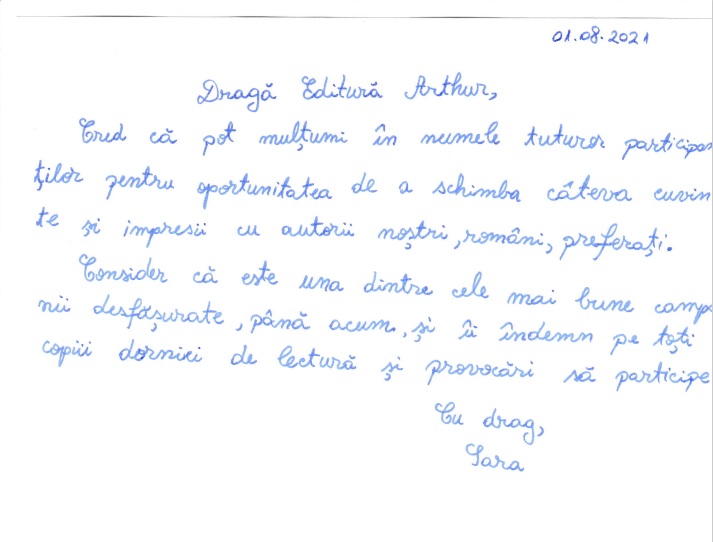 01.08.2021
Dragă Editură Arthur,
Cred că pot mulțumi în numele tuturor participan
ților pentru oportunitatea de a schimba câteva cuvin
te și impresii cu autorii noștri, români, preferați.
Consider că este una dintre cele mai bune campa
nii desfășurate, până acum, și îi îndemn pe toți
copiii dornici de lectură și provocări să participe
Cu drag,
Sara